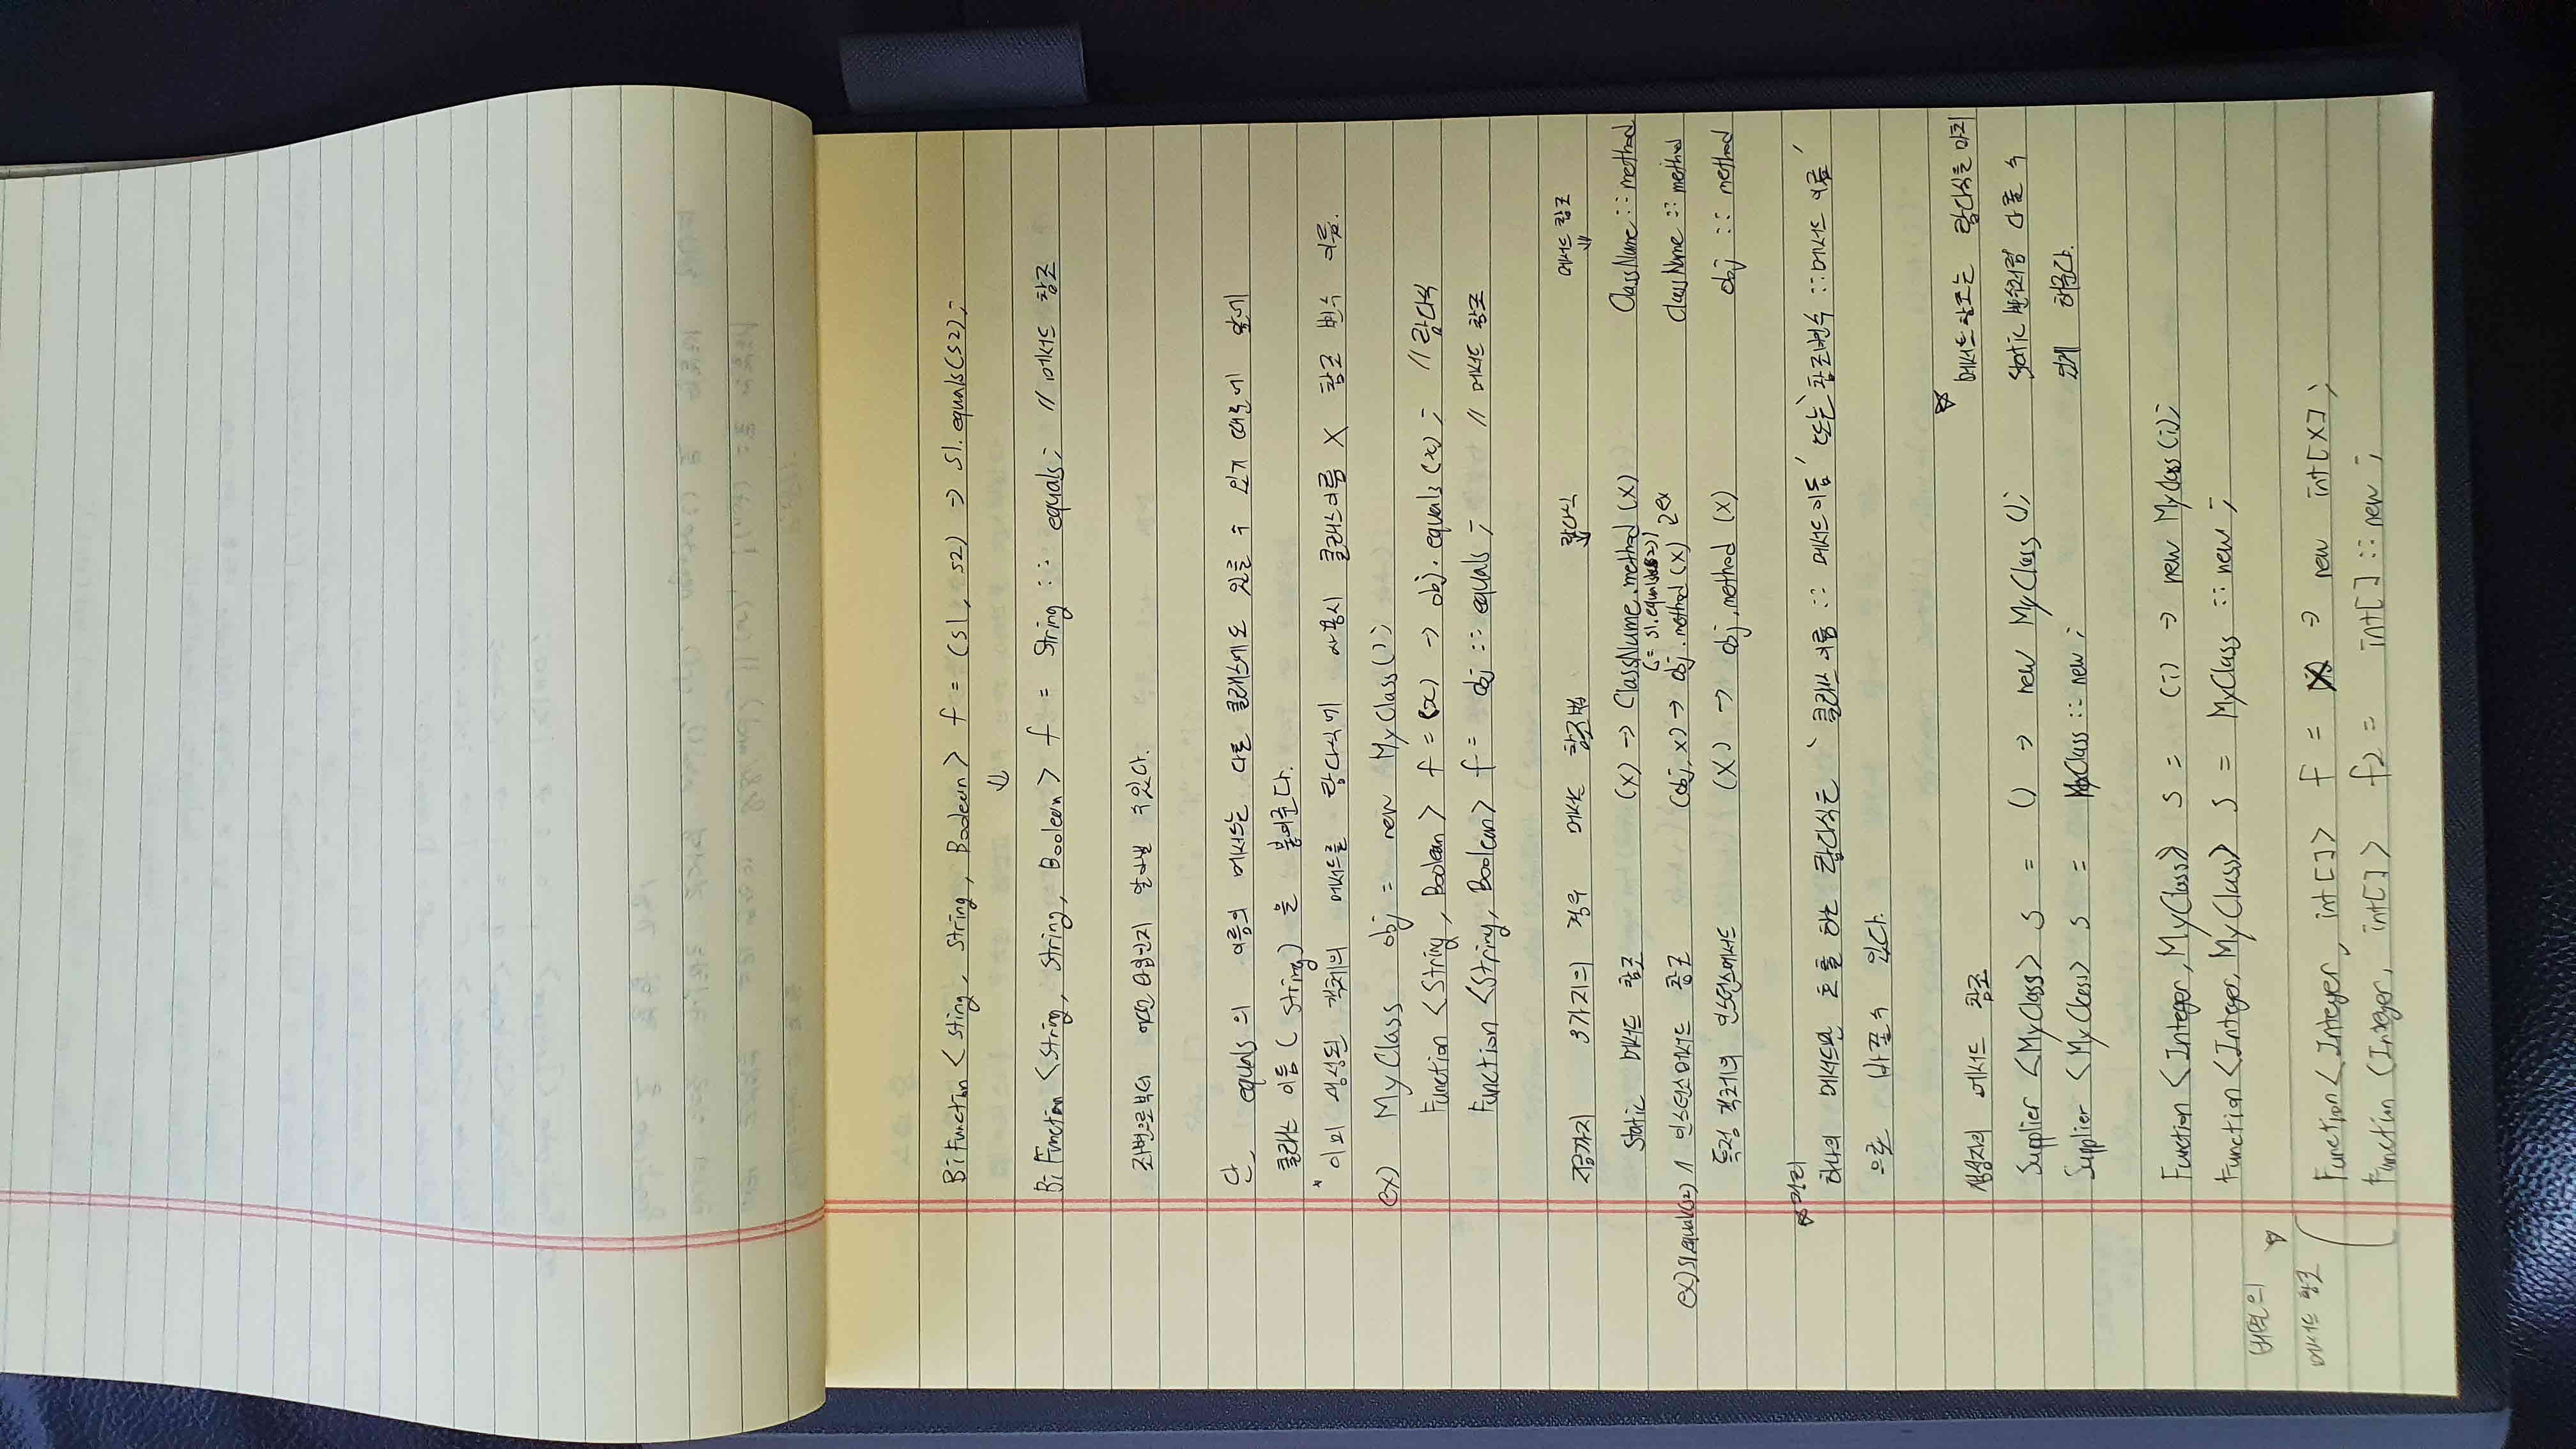 BiFunction < Sting, String, Boolean > f = (s1, s2) -> s1.equals(s2);
⇓
BiFunction <String, String, Boolean > f = String :: equals; // 메서드 참조
좌변으로부터 어떤 타입인지 알아낼 수있다.
단, equals의 이름의 메서드는 다른 클래스에도 있을 수 있기 때문에 앞에
클래스 이름( String) 을 붙여준다.
* 이미 생성된 객체의 메서드를 람다식에 사용시 클래스이름 X 참조 변수 이름.
ex) MyClass obj = new MyClass();
Function <String, Boolean > f = (x) -> obj.equals(x); // 람다식
Function <String, Boolean> f = obj :: equals; // 메서드 참조
지금까지 3가지의 경우 메서드 참조법 람다식 메서드 참조
⇓ ⇓
static 메서드 참조 (x) -> ClassName.method (x) ClassName :: method
(= s1.equals(s2))
ex) s1.equal(s2) 인스턴스메서드 참조 (obj, x) -> obj.method (x) ex ClassName :: method
특정 객체의 인스턴스메서드 (x) -> obj.method (x) obj :: method
☆정리
하나의 메서드만 호출 하는 람다식은 '클래스 이름 :: 메서드이름' 또는 '참조변수 :: 메서드 이름'
으로 바꿀 수 있다.
생성자의 메서드 참조
Supplier <MyClass> s = () -> new MyClass ();
Supplier <MyClass> s = MyClass :: new ;
☆ 메서드 참조는 람다식을 마치
static 변수처럼 다룰 수
있게 해준다.
Function <Integer, MyClass> s = (i) -> new MyClass(i);
Function <Integer, MyClass> s = MyClass :: new ;
배열의 ☆
메서드 참조
Function < Integer, int[]> f = -> new int[x];
Function <Integer, int[]> f2 = int[] :: new ;